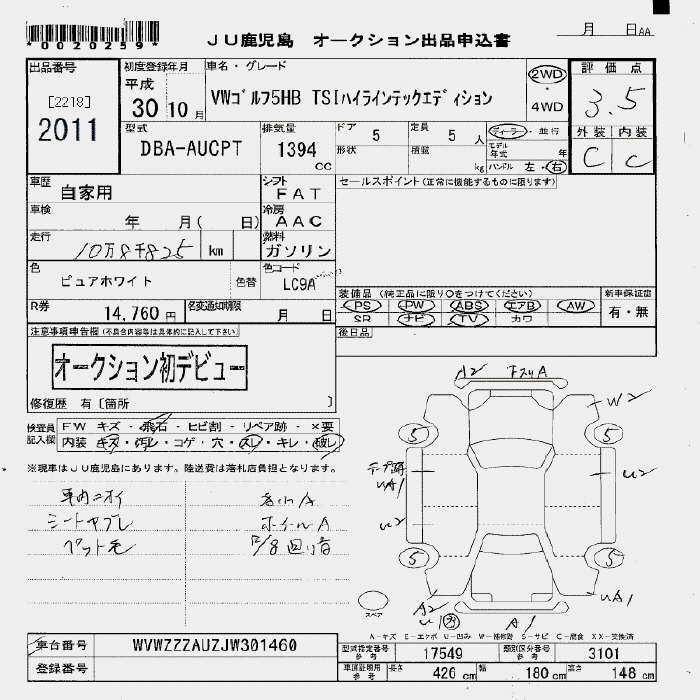 *0020259*
JU鹿児島 オークション出品申込書
月 日AA
出品番号
[2218]
2011
初度登録年月
平成
30 10 月
車名・グレード
VWゴルフ5HB TSIハイラインテックエディション
2WD
・
4WD
評価点
3.5
外装 内装
C C
型式
DBA-AUCPT
排気量
1394 CC
ドア 5
定員 5 人
形状
積載 kg
ディーラー・並行
モデル年式 年
ハンドル 左・右
車歴
自家用
シフト
FAT
セールスポイント(正常に機能するものに限ります)
車検
年 月( 日)
冷房
AAC
走行
10万8千825 km
燃料
ガソリン
色
ピュアホワイト
色替
色コード
LC9A
R券
14,760 円
名変通知期限
月 日
装備品(純正品に限り○をつけてください)
PS PW ABS エアB AW
SR ナビ TV カワ
新車保証書
有・無
後日品
注意事項申告欄(不具合内容等は具体的に記入して下さい)
オークション初デビュー
修復歴 有[箇所 ]
検査員記入欄
FW キズ・飛石・ヒビ割・リペア跡・×要
内装 キズ・汚レ・コゲ・穴・スレ・キレ・破レ
※現車はJU鹿児島にあります。陸送費は落札店負担となります。
車内ニオイ
シートヤブレ
ペット毛
ホイールA
A2 下スリA
W2
5 5
テープ跡
UA1
U2
U2
5 5
スペア
A2
U1
A1
UA1
A-キズ E-エクボ U-凹み W-補修跡 S-サビ C-腐食 XX-交換済
車台番号 WVWZZZAUZJW301460
登録番号
型式指定番号 参考 17549
類別区分番号 参考 3101
車庫証明用 参考 長さ 426 cm 幅 180 cm 高さ 148 cm